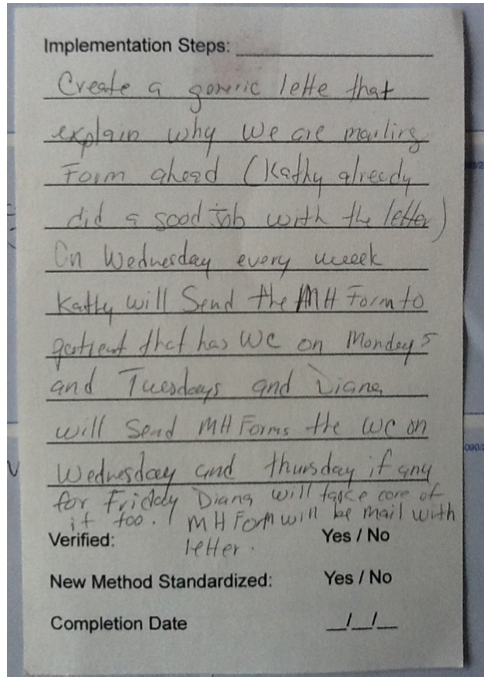 Implementation Steps:
Create a generic lette that
explain why we are mailing
Form ahead (Kathy already
did a good job with the letter)
On Wednesday every week
Kathy will Send the MH Form to
patient that has WC on Mondays
and Tuesdays and Diana
will Send MH Forms the WC on
Wednesday and thursday if any
for Friday Diana will take care of
it too. MH Form will be mail with
letter.
Verified: Yes / No
New Method Standardized: Yes / No
Completion Date _/_/_